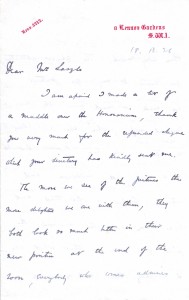 Lennox Gardens
S.W.1.
Dear Mr
I am afraid I made a bit of
a muddle over the Honorarium, thank
you very much for the repeated cheque
which your Secretary has kindly sent me.
The more we see of the pictures the
more delighted we are with them, they
both look so much better in their
new position at the end of the
room, everybody who comes admires